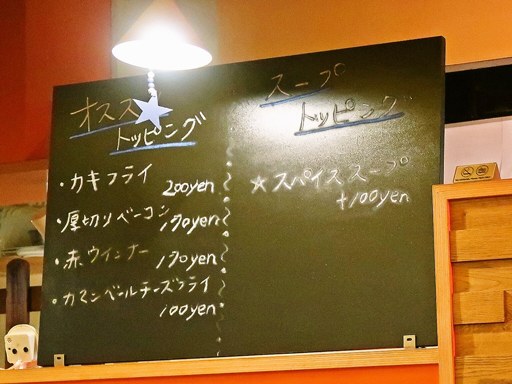 オススメ
トッピング
・カキフライ
200yen
・厚切りベーコン
170yen
・赤ウインナー
170yen
・カマンベールチーズフライ
100yen
スープ
トッピング
★スパイススープ
+100yen